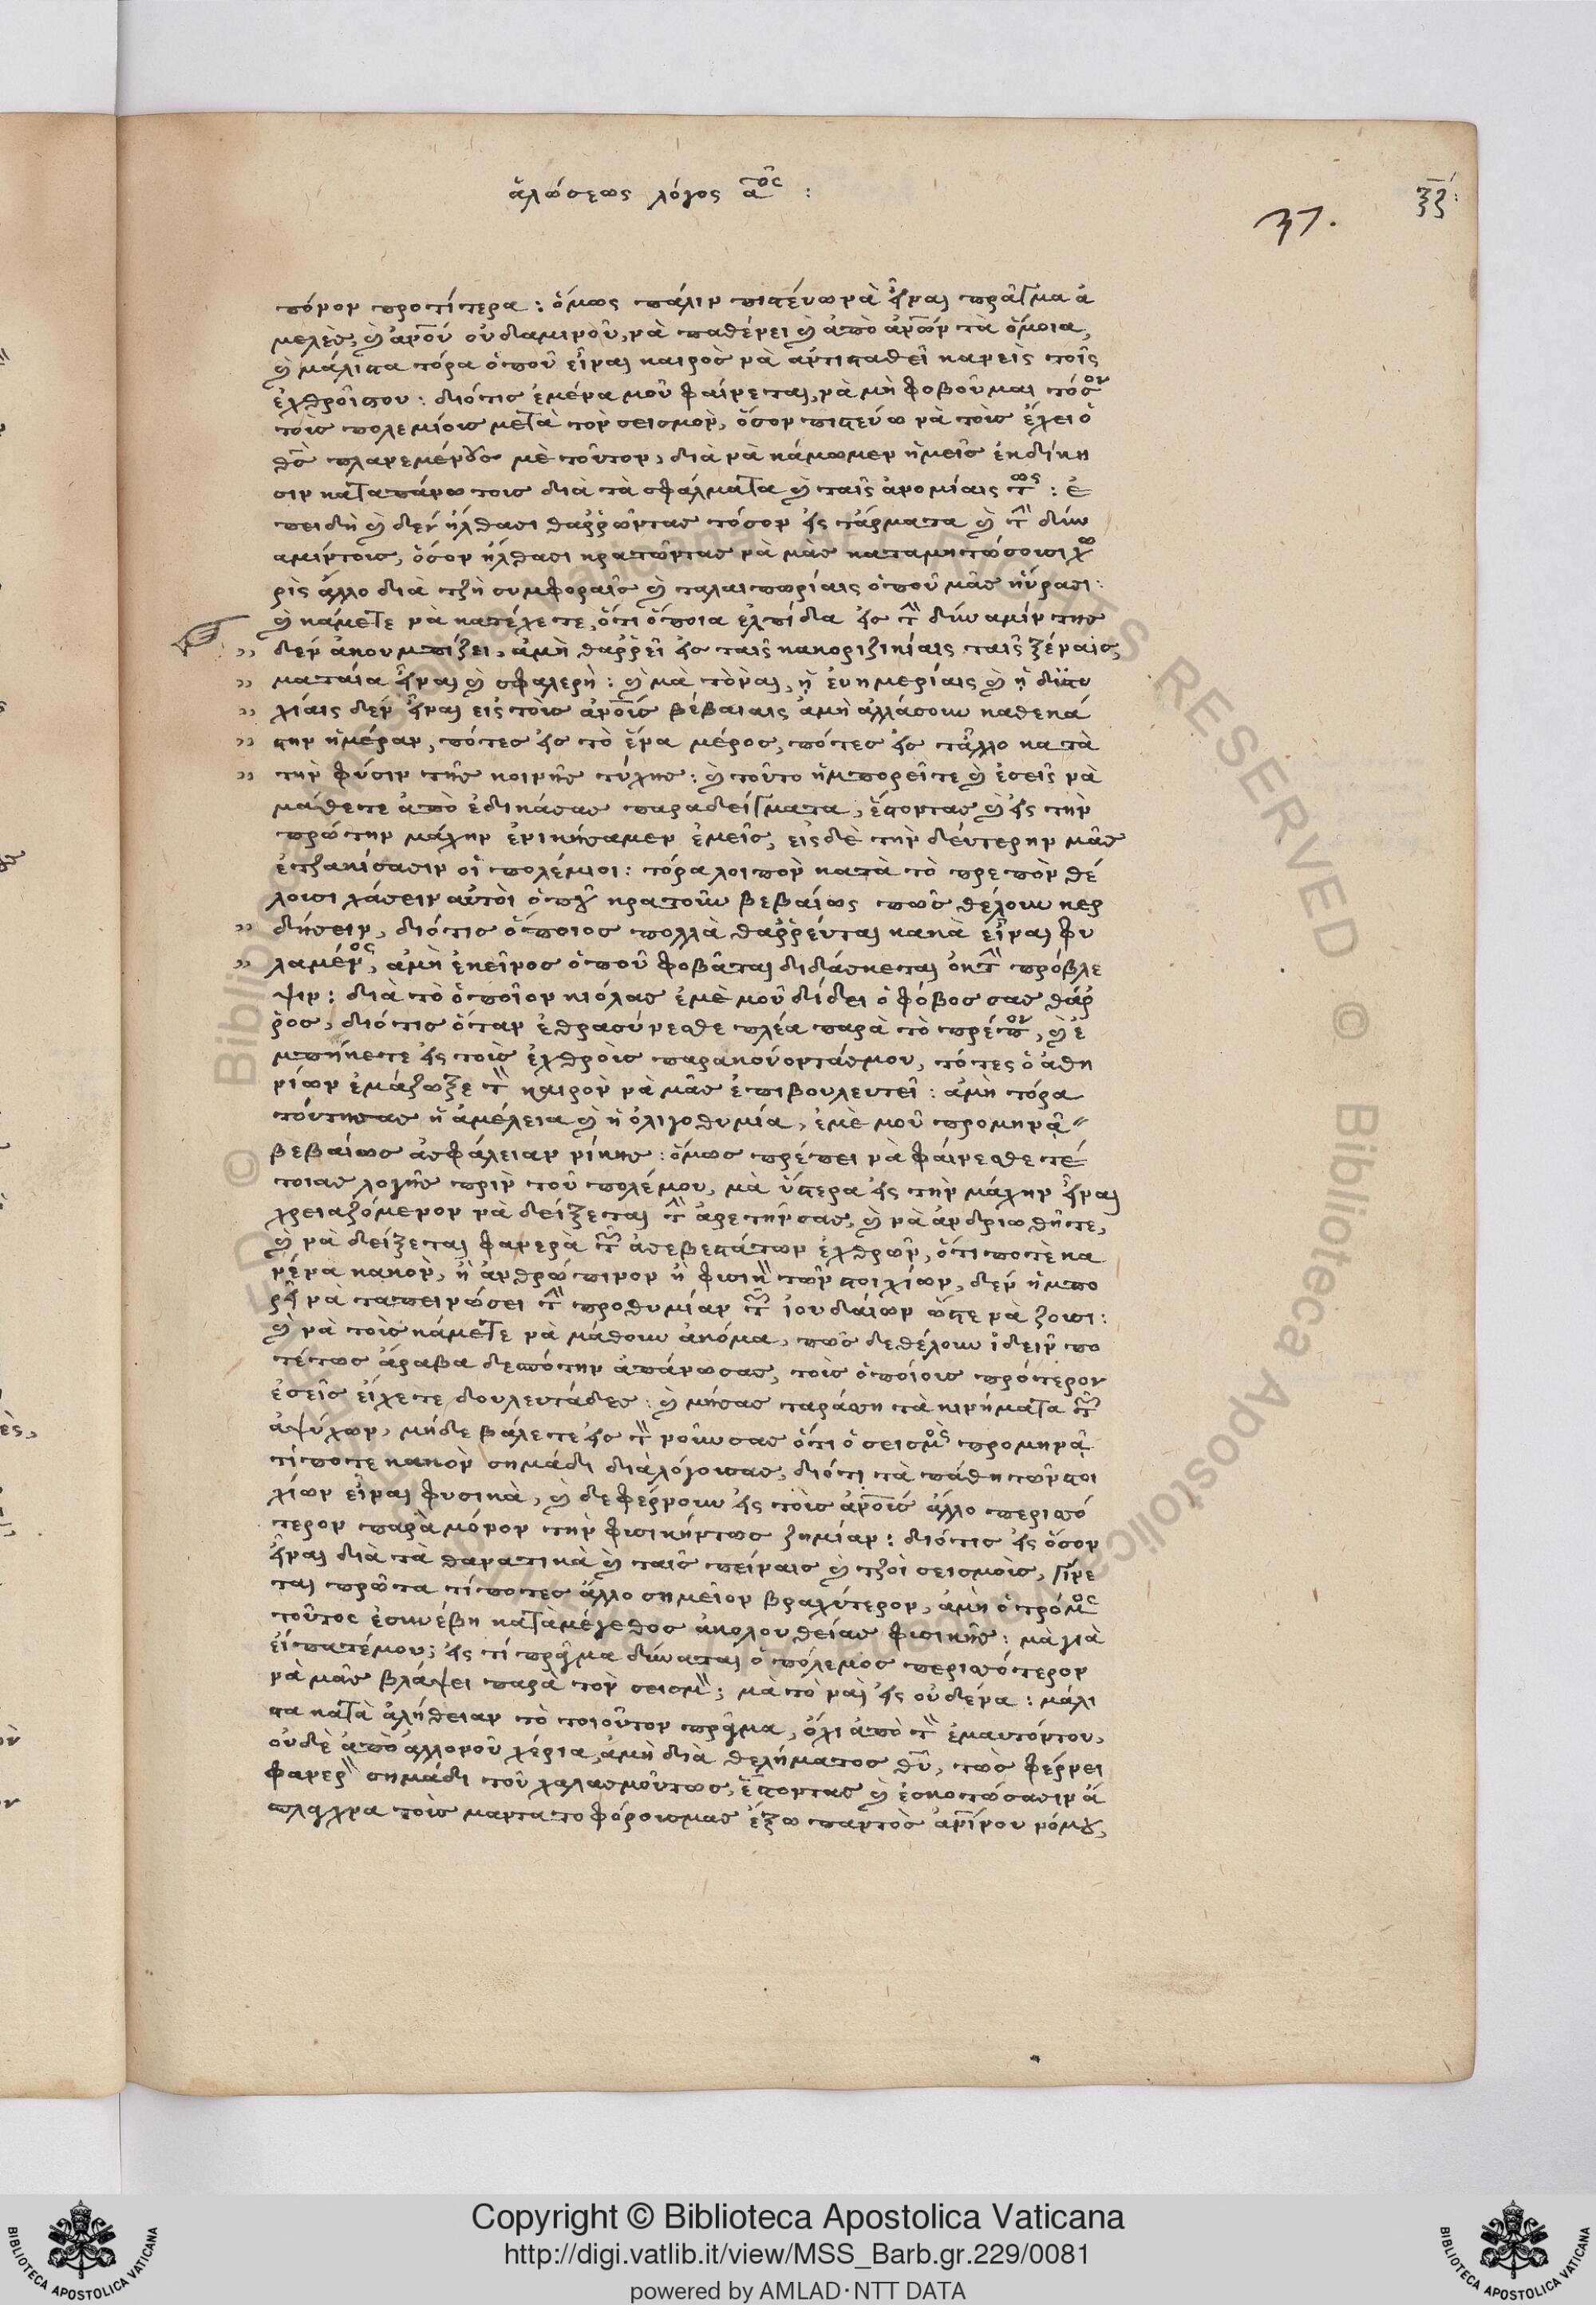 ἁλώσεως λόγος α^ος :
37.
ξζ:
πόνον προτίτερα : ὅμως πάλιν πιστεύω νὰ ἦναι πρᾶγμα ἀ
μελὲς, καὶ ἀνοῦ οὐδαμινοῦ, νὰ παθένει καὶ ἀπὸ ἀνων τὰ ὅμοια,
καὶ μάλιστα τόρα ὁποῦ εἶναι καιρὸς νὰ ἀντισταθεῖ κανεὶς τοῖς
ἐχθροῖς του : διότις ἐμένα μοῦ φαίνεται, νὰ μὴ φοβοῦμαι τόσον
τοὶς πολεμίοις μετὰ τὸν σεισμὸν, ὅσον πιστεύω νὰ τοὶς ἔχει ὁ
θς πλανεμένους μὲ τοῦτον, διὰ νὰ κάμωμεν ἡμεῖς ἐκδίκη
σιν κατὰ πάνω τοις διὰ τὰ σφάλματα καὶ ταῖς ἀνομίαις τως : ἐ
πειδὴ καὶ δὲν ἤλθασι θαῤῥῶντας τόσον εἰς τἄρματα καὶ τὴν δύν
αμίντοις, ὅσον ἤλθασι κρατῶντας νὰ μᾶς καταμητώσοισι χω
ρὶς ἄλλο διὰ τζὴ συμφοραῖς καὶ ταλαιπωρίαις ὁποῦ μᾶς ηὕρασι :
καὶ κάμετε νὰ κατέχετε, ὅτι ὅποια ἐλπίδα εἰς τὴν δύναμίν της
δὲν ἀκουμπίζει, ἀμὴ θαῤῥεῖ εἰς ταῖς κακοριζικίαις ταῖς ξέναις,
ματαία ἦναι καὶ σφαλερὴ : καὶ μὰ τὸ ναὶ, ἡ ἐυημερίαις καὶ ἡ δυστυ
χίαις δὲν ἦναι εἰς τοὶς ἀνοὺς βέβαιαις ἀμὴ ἀλλάσουν καθεκά
στην ἡμέραν, πότες εἰς τὸ ἕνα μέρος, πότες εἰς τἄλλο κατὰ
τὴν φύσιν τῆς κοινῆς τύχης : καὶ τοῦτο ἡμπορεῖτε καὶ ἐσεῖς νὰ
μάθετε ἀπὸ ἐδικάσας παραδείγματα, ἔστοντας καὶ εἰς τὴν
πρώτην μάχην ἐνικήσαμεν ἐμεῖς, εἰς δὲ τὴν δεύτερην μᾶς
ἐτζακίσασιν οἱ πολέμιοι : τόρα λοιπὸν κατὰ τὸ πρεπὸν θέ
λοισι χάσειν αὐτοὶ ὁποῦ κρατοῦν βεβαίως πῶς θέλουν κερ
δήσειν, διότις ὅποιος πολλὰ θαῤῥέυται κακὰ εἶναι φυ
λαμένος, ἀμὴ ἐκεῖνος ὁποῦ φοβᾶται διδάσκεται ὀκ τὴν πρόβλε
ψιν : διὰ τὸ ὁποῖον κιόλας ἐμὲ μοῦ δίδει ὁ φόβος σας θάῤ
ῥος, διότις ὅταν ἐθρασύνεσθε πλέα παρὰ τὸ πρέπον, καὶ ἐ
μπήκετε εἰς τοὶς ἐχθρὸις παρακούοντάς μου, τότες ὁ ἀθη
νίων ἐμάζωξε τὸν καιρὸν νὰ μᾶς ἐπιβουλευτεῖ : ἀμὴ τόρα
τούτησας ἡ ἀμέλεια καὶ ἡ ὀλιγοθυμία, ἐμὲ μοῦ προμηνᾷ
βεβαίως ἀσφάλειαν νίκης : ὅμως πρέπει νὰ φαίνεσθε τέ
τοιας λογῆς πρὶν τοῦ πολέμου, μὰ ὕστερα εἰς τὴν μάχην ἦναι
χρειαζόμενον νὰ δείξεται τὴν ἀρετήν σας, καὶ νὰ ἀνδριωθῆτε,
καὶ νὰ δείξεται φανερὰ τῶν ἀσεβεστάτων ἐχθρῶν, ὅτι ποτὲ κα
νένα κακὸν, ἢ ἀνθρώπινον ἢ φισικὸν τῶν στοιχίων, δὲν ἡμπο
ρεῖ νὰ ταπεινώσει τὴν προθυμίαν τῶν ἰουδαίων ὥστε νὰ ζοισι :
καὶ νὰ τοὶς κάμετε νὰ μάθουν ἀκόμα, πῶς δε θέλουν ἰδεῖν πο
τέτως ἄραβα δεσπότην ἀπάνωσας, τοὶς ὁποίοις πρότερον
ἐσεῖς εἴχετε δουλευτάδες : καὶ μήσας ταράσση τὰ κινήματα τῶν
ἀψύχων, μήδε βάλετε εἰς τὸν νοῦν σας ὅτι ὁ σεισμὸς προμηνᾷ
τίποτε κακὸν σημάδι διαλόγοισας, διότι τὰ πάθη τῶν στοι
χίων εἶναι φυσικὰ, καὶ δε φέρνουν εἰς τοὶς ἀνοὺς ἄλλο περισσό
τερον παρὰ μόνον τὴν φισικήντως ζημίαν : διότις εἰς ὅσον
ἦναι διὰ τὰ θανατικὰ καὶ ταῖς πείναις καὶ τζὸὶ σεισμοὶς, γίνε
ται πρῶτα τίποτες ἄλλο σημεῖον βραχύτερον, ἀμὴ ὁ τρόμος
τοῦτος ἐσυνέβη κατὰ μέγεθος ἀκολουθείας φισικῆς : μὰ γιὰ
εἰπατέμου ; εἰς τί πρᾶγμα δύναται ὁ πόλεμος περισσότερον
νὰ μᾶς βλάψει παρὰ τὸν σεισμὸν ; μὰ τὸ ναὶ εἰς οὐδένα : μάλι
στα κατὰ ἀλήθειαν τὸ τοιοῦτον πρᾶγμα, ὄχι ἀπὸ τὸν ἐμαυτόντου,
οὐδὲ ἀπὸ ἀλλονοῦ χέρια, ἀμὴ διὰ θελήματος θῦ, τὼς φέρνει
φανερὸν σημάδι τοῦ χαλασμοῦντως, ἔστοντας καὶ ἐσκοτώσασιν ἄ
σπλαχνα τοὶς μαντατοφόροισμας ἔξω παντὸς ἀνίνου νόμου,
Copyright © Biblioteca Apostolica Vaticana
http://digi.vatlib.it/view/MSS_Barb.gr.229/0081
powered by AMLAD·NTT DATA